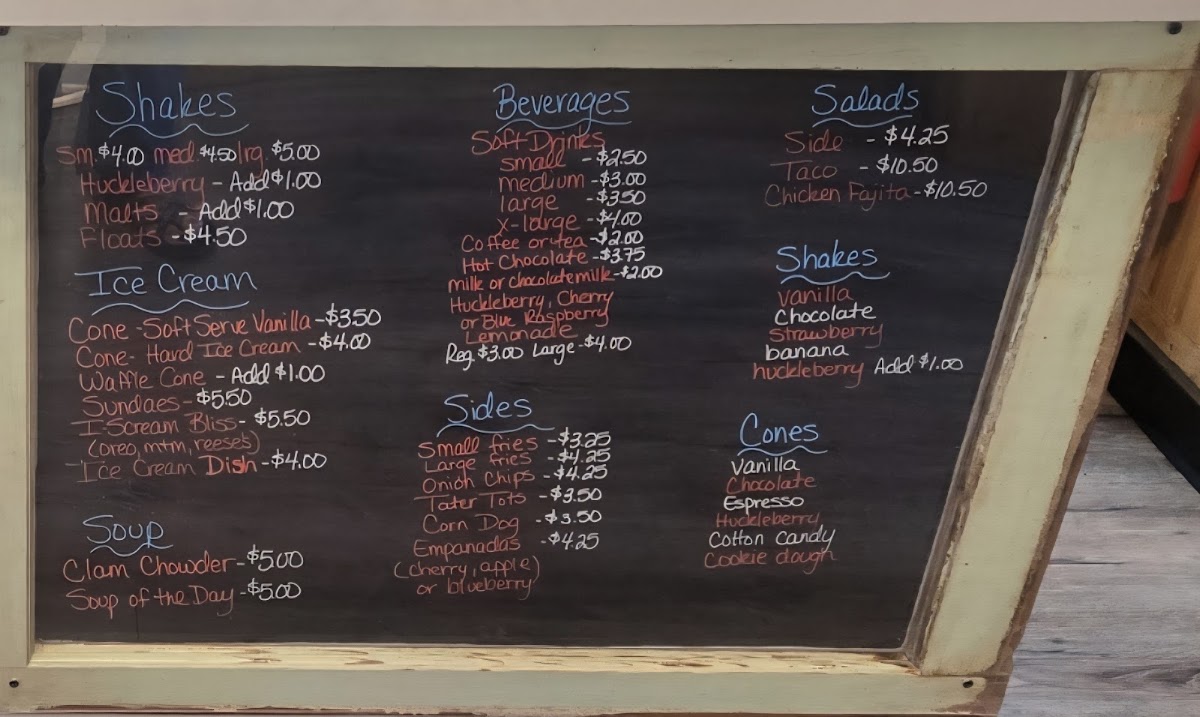 Shakes
Sm. $4.00 med. $4.50 lrg. $5.00
Huckleberry - Add $1.00
Malts - Add $1.00
Floats - $4.50
Ice Cream
Cone - Soft Serve Vanilla - $3.50
Cone - Hard Ice Cream - $4.00
Waffle Cone - Add $1.00
Sundaes - $5.50
I-Scream Bliss - $5.50
(oreo, mtm, reese's)
Ice Cream Dish - $4.00
Soup
Clam Chowder - $5.00
Soup of the Day - $5.00
Beverages
Soft Drinks
small - $2.50
medium - $3.00
large - $3.50
x-large - $4.00
Coffee or tea - $2.00
Hot Chocolate - $3.75
milk or chocolate milk - $2.00
Huckleberry, Cherry
or Blue Raspberry
Lemonade
Reg. $3.00 Large - $4.00
Sides
Small fries - $3.25
Large fries - $4.25
Onion Chips - $4.25
Tater Tots - $3.50
Corn Dog - $3.50
Empanadas - $4.25
(cherry, apple)
or blueberry
Salads
Side - $4.25
Taco - $10.50
Chicken Fajita - $10.50
Shakes
Vanilla
Chocolate
Strawberry
banana
huckleberry Add $1.00
Cones
Vanilla
Chocolate
Espresso
Huckleberry
Cotton Candy
Cookie dough